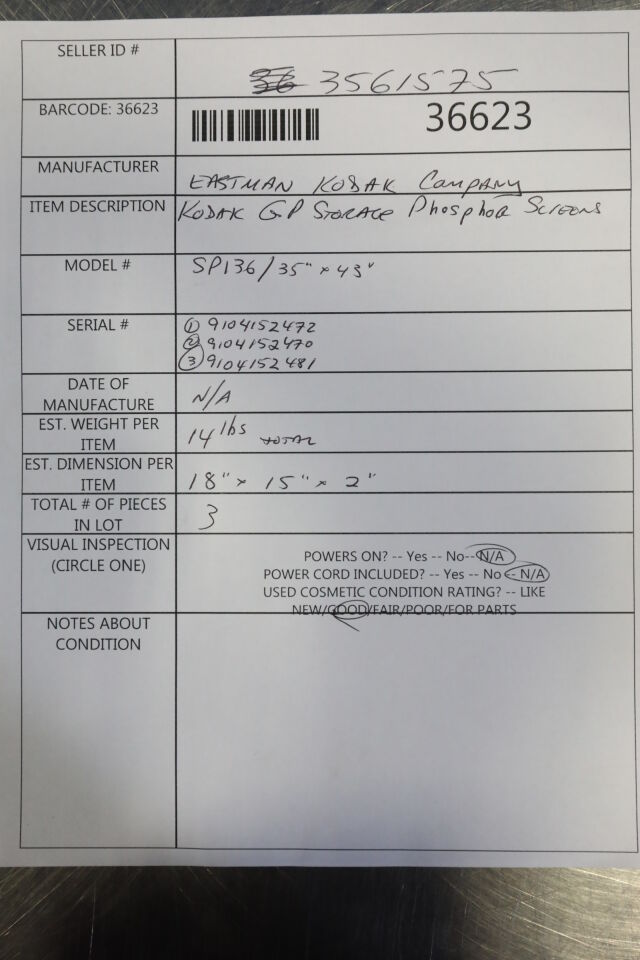 SELLER ID #
3561575
BARCODE: 36623
36623
MANUFACTURER
EASTMAN KODAK COMPANY
ITEM DESCRIPTION
KODAK GP STORAGE PHOSPHOR SCREENS
MODEL #
SP136/35" x 43"
SERIAL #
① 9104152472
② 9104152470
③ 9104152481
DATE OF
MANUFACTURE
N/A
EST. WEIGHT PER
ITEM
14 lbs TOTAL
EST. DIMENSION PER
ITEM
18" x 15" x 2"
TOTAL # OF PIECES
IN LOT
3
VISUAL INSPECTION
(CIRCLE ONE)
POWERS ON? -- Yes -- No-- N/A
POWER CORD INCLUDED? -- Yes -- No -- N/A
USED COSMETIC CONDITION RATING? -- LIKE
NEW/GOOD/FAIR/POOR/FOR PARTS
NOTES ABOUT
CONDITION